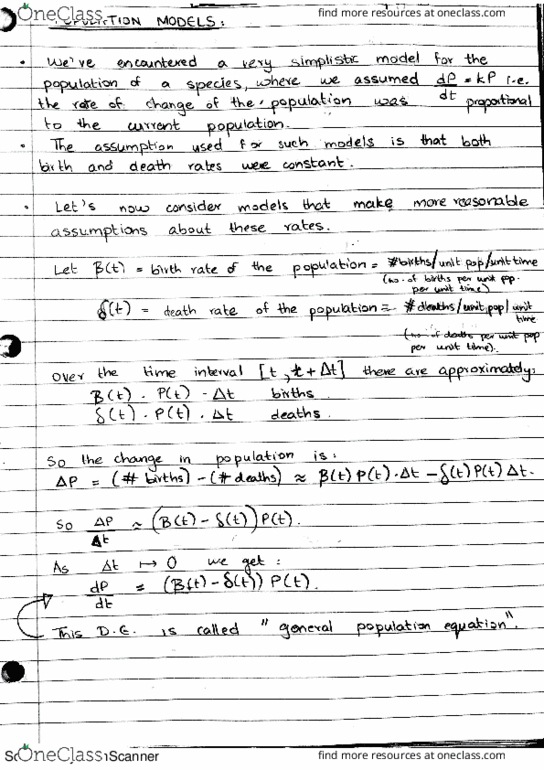 OneClass find more resources at oneclass.com
POPULATION MODELS:
• We've encountered a very simplistic model for the
population of a species, where we assumed dP/dt = kP i.e.
the rate of change of the population was proportional
to the current population.
• The assumption used for such models is that both
birth and death rates were constant.
• Let's now consider models that make more reasonable
assumptions about these rates.
Let β(t) = birth rate of the population = #births/unit pop/unit time
(no. of births per unit pop.
per unit time)
δ(t) = death rate of the population = # deaths/unit pop/unit
time
(no. of deaths per unit pop
per unit time).
Over the time interval [t, t + Δt] there are approximately:
β(t) · P(t) · Δt births
δ(t) · P(t) · Δt deaths.
So the change in population is:
ΔP = (# births) - (# deaths) ≈ β(t) P(t) · Δt - δ(t) P(t) Δt.
So ΔP/Δt ≈ (β(t) - δ(t)) P(t).
As Δt ↦ 0 we get:
dP/dt = (β(t) - δ(t)) P(t).
This D.E. is called "general population equation".
OneClass Scanner find more resources at oneclass.com